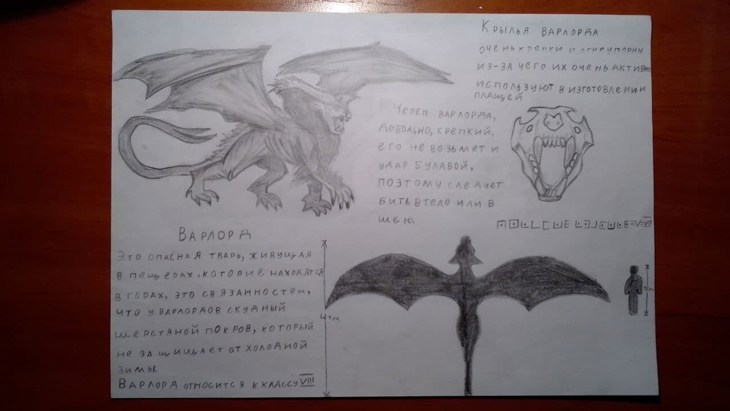 Крылья варлорда
очень крепки и огнеупорны
из-за чего их очень активно
используют в изготовлении
плащей
Череп варлорда,
довольно, крепкий,
его не возьмёт и
удар булавой,
поэтому следует
бить в тело или в
шею.
Варлорд
Это опасная тварь, живущая
в пещерах, которые находятся
в горах, это связанно с тем,
что у варлордов скудный
шерстяной покров, который
не защищает от холодной
зимы.
Варлорд относится к классу VIII